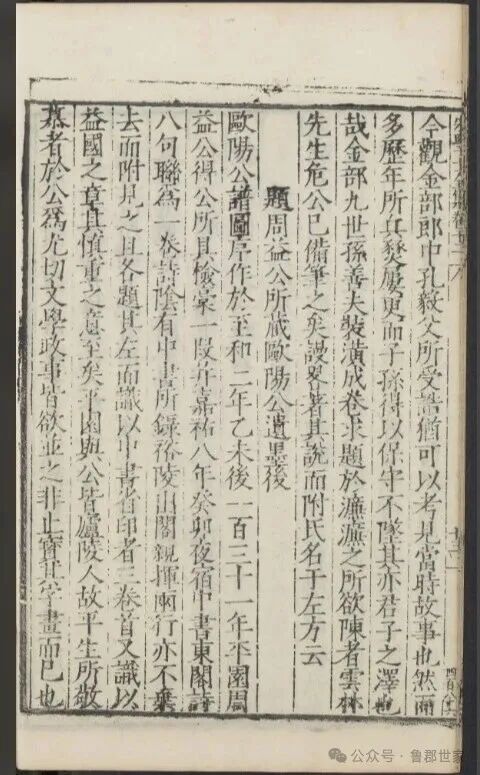 今觀金部郎中孔毅父所受誥猶可以考見當時故事也然而
多歷年所兵燹屢更而子孫得以保守不墜其亦君子之澤也
哉金部九世孫善夫裝潢成卷求題於濂濂之所欲陳者雲林
先生危公已備筆之矣謾畧著其說而附氏名于左方云
題周益公所藏歐陽公遺墨後
歐陽公譜圖序作於至和二年乙未後一百三十一年平園周
益公得公所具檢藁一段并嘉祐八年癸卯夜宿中書東閣詩
八句聯爲一卷詩陰有中書所錄裕陵山閣親揮兩行亦不棄
去而附見之且各題其左而識以中書省印者三卷首又識以
益國之章其慎重之意至矣平園與公皆廬陵人故平生所敬
慕者於公爲尤切文學政事皆欲並之非止寶其字畫而已也
公众号·鲁郡世家